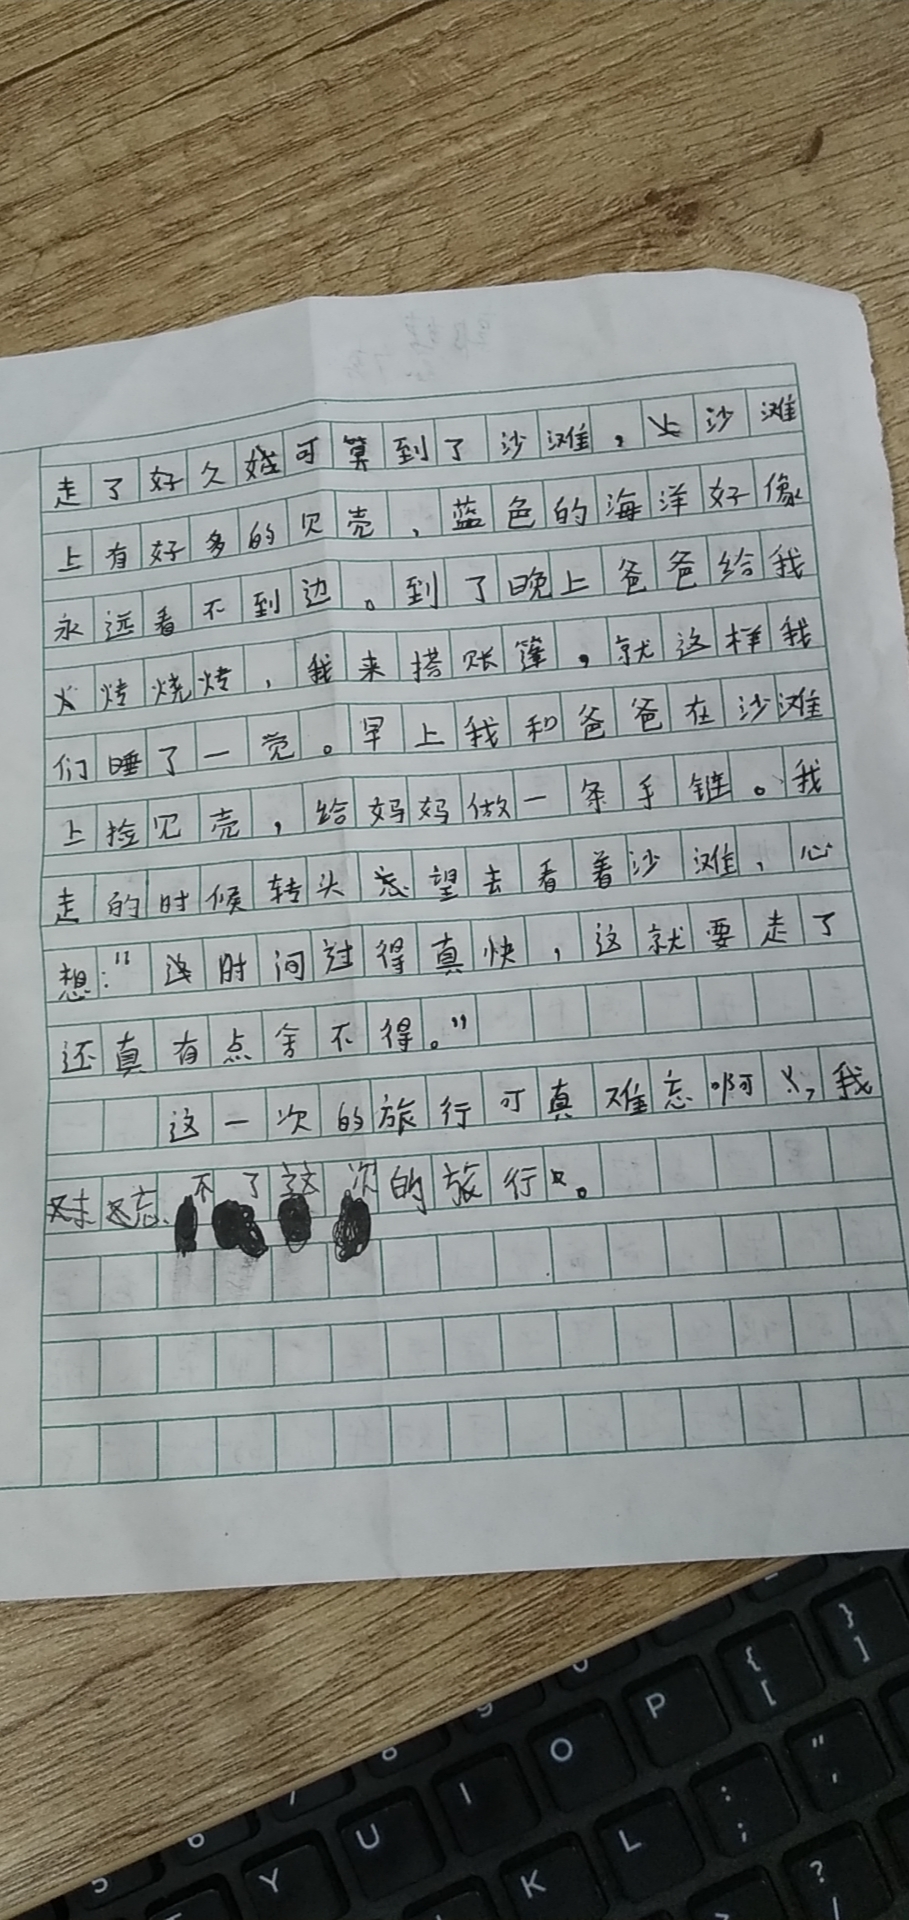 走了好久终可算到了沙滩，沙滩
上有好多的贝壳，蓝色的海洋好像
永远看不到边。到了晚上爸爸给我
烤烧烤，我来搭账篷，就这样我
们睡了一觉。早上我和爸爸在沙滩
上捡贝壳，给妈妈做一条手链。我
走的时候转头望去看着沙滩，心
想：“时间过得真快，这就要走了
还真有点舍不得。”
这一次的旅行可真难忘啊，我
忘不了这次的旅行。